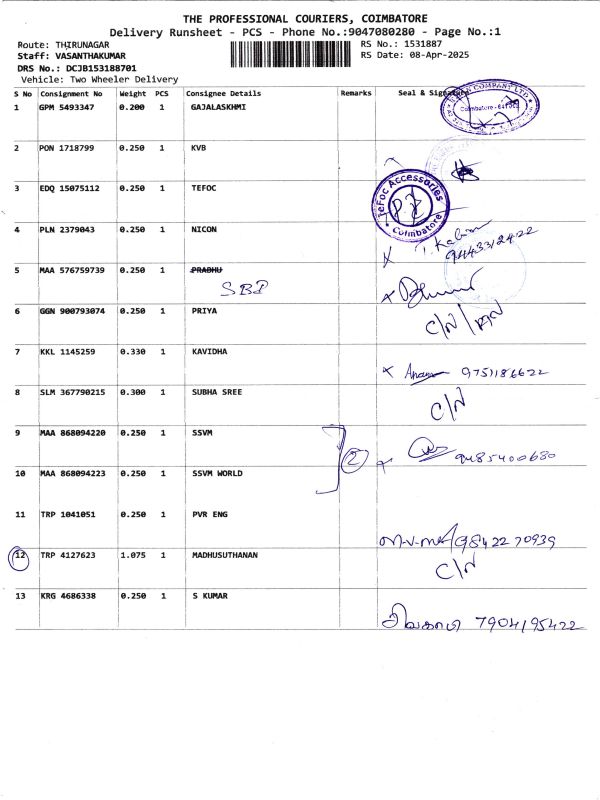 THE PROFESSIONAL COURIERS, COIMBATORE
Delivery Runsheet - PCS - Phone No.:9047080280 - Page No.:1
Route: THIRUNAGAR
Staff: VASANTHAKUMAR
DRS No.: DCJB153188701
Vehicle: Two Wheeler Delivery
RS No.: 1531887
RS Date: 08-Apr-2025
S No Consignment No Weight PCS Consignee Details Remarks Seal & Signature
1 GPM 5493347 0.200 1 GAJALASKHMI
COMPANY LTD
Coimbatore
2 PON 1718799 0.250 1 KVB
3 EDQ 15075112 0.250 1 TEFOC
TeFoc Accessories
Coimbatore
4 PLN 2379043 0.250 1 NICON
9443312422
5 MAA 576759739 0.250 1 PRABHU
SBI
6 GGN 900793074 0.250 1 PRIYA
C/N
7 KKL 1145259 0.330 1 KAVIDHA
9751186622
8 SLM 367790215 0.300 1 SUBHA SREE
C/N
9 MAA 868094220 0.250 1 SSVM
2
9485400680
10 MAA 868094223 0.250 1 SSVM WORLD
11 TRP 1041051 0.250 1 PVR ENG
9842270939
12 TRP 4127623 1.075 1 MADHUSUTHANAN
C/N
13 KRG 4686338 0.250 1 S KUMAR
சிவகாமி 7904195422